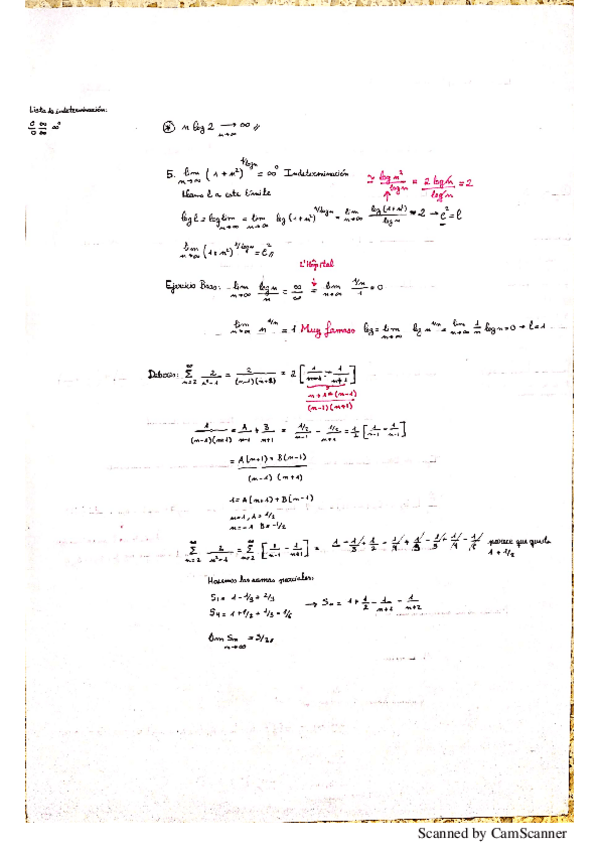 Lista de indeterminación:
0/0 ∞/∞ ∞⁰
⊛ n log 2 ⟶ ∞ //
n→∞
5. lim n→∞ (1 + n²)^(1/log n) = ∞⁰ Indeterminación
≃ log n² / log n = 2 log n / log n = 2
llamo l a este límite
log l = log lim n→∞ = lim n→∞ log (1+n²)^(1/log n) = lim n→∞ log(1+n²) / log n = 2 → e² = l
lim n→∞ (1+n²)^(1/log n) = e² //
L'Hôpital
Ejercicio Base: lim n→∞ log n / n = ∞/∞ = lim n→∞ (1/n) / 1 = 0
lim n→∞ n^(1/n) = 1 Muy famoso log = lim n→∞ log n^(1/n) = lim n→∞ 1/n log n = 0 → l = 1
Deberes: ∞ Σ n=2 2/(n²-1) = 2/((n-1)(n+1)) = 2 [ 1/(n-1) - 1/(n+1) ]
n+1-(n-1)
(n-1)(n+1)
1/((n-1)(n+1)) = A/(n-1) + B/(n+1) = (1/2)/(n-1) - (1/2)/(n+1) = 1/2 [ 1/(n-1) - 1/(n+1) ]
= A(n+1) + B(n-1)
(n-1) (n+1)
1 = A(n+1) + B(n-1)
n=1, A = 1/2
n=-1 B = -1/2
∞ Σ n=2 2/(n²-1) = ∞ Σ n=2 [ 1/(n-1) - 1/(n+1) ] = 1 - 1/3 + 1/2 - 1/4 + 1/3 - 1/5 + 1/4 - 1/6 parece que queda
1 + 1/2
Hacemos las sumas parciales:
S₁ = 1 - 1/3 = 2/3
→ Sn = 1 + 1/2 - 1/(n+1) - 1/(n+2)
lim Sn = 3/2 //
n→∞
Scanned by CamScanner